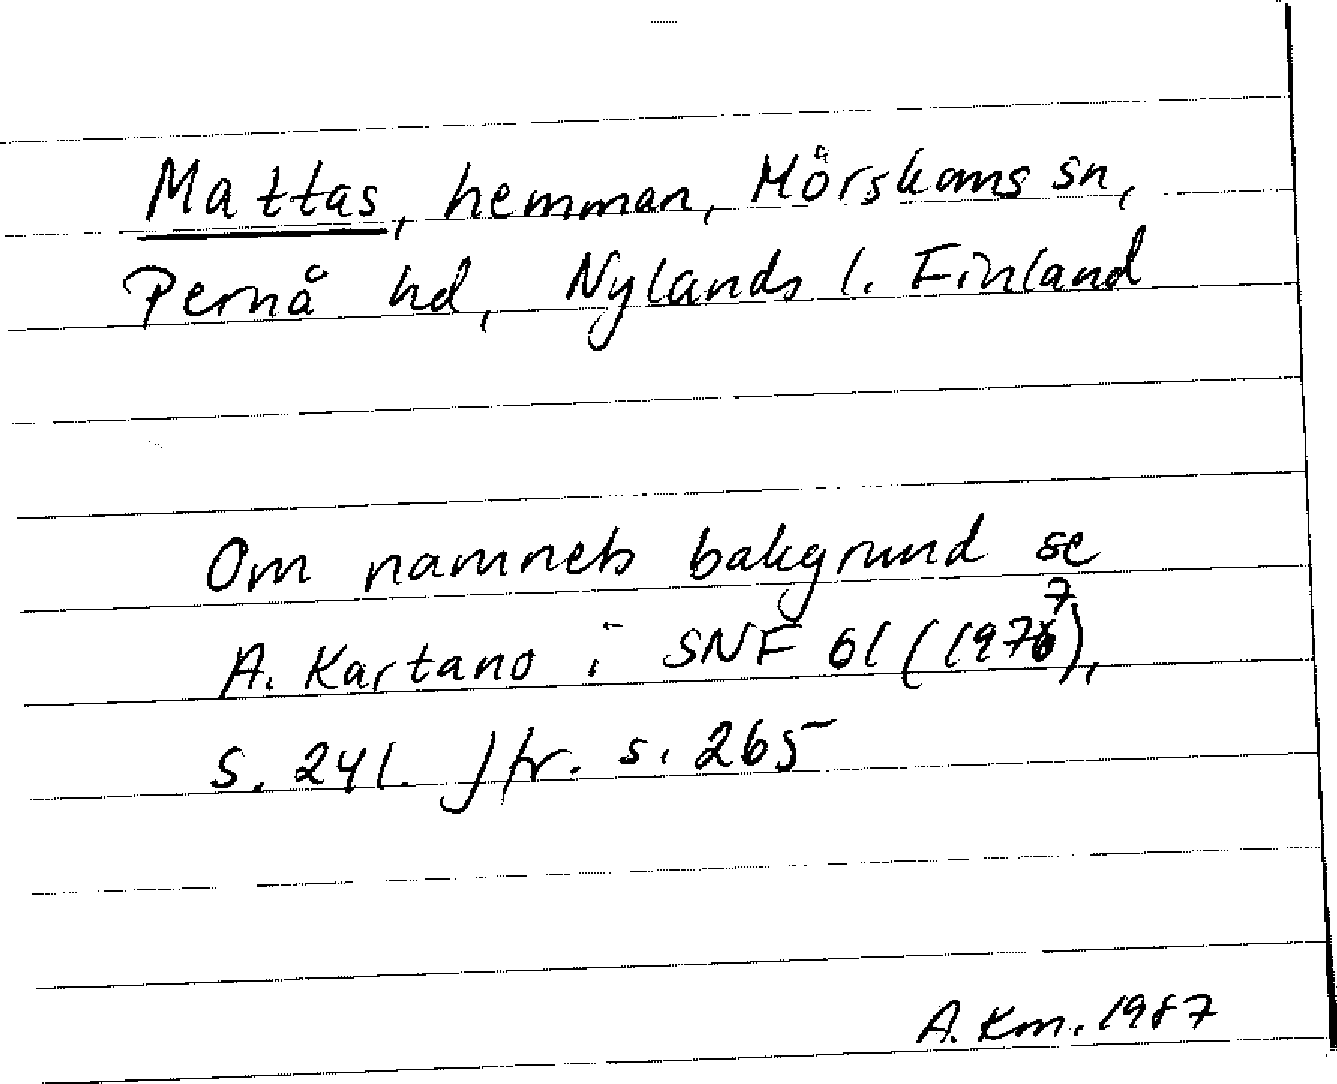 Mattas, hemman, Mörskoms sn,
Pernå hd, Nylands l. Finland
Om namnets bakgrund se
A. Kartano i SNF 61 (1977),
s. 241. Jfr. s. 265
A. Km. 1987